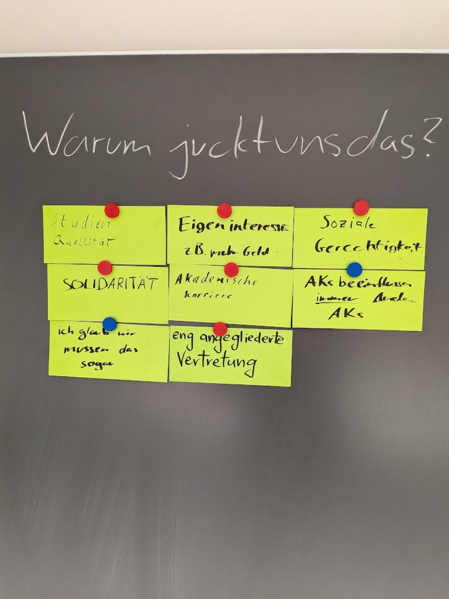 Warum jucktunsdas?
Studien
Qualität
Eigeninteresse
z.B. mehr Geld
Soziale
Gerechtigkeit
SOLIDARITÄT
Akademische
Karriere
AKs beeinflussen
immer andere
AKs
ich glaub wir
müssen das
sogar
eng angegliederte
Vertretung